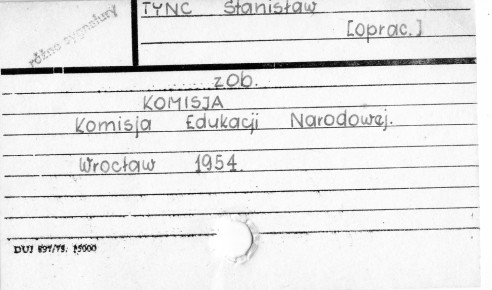 różne sygnatury
TYNC Stanisław
[oprac.]
zob.
KOMISJA
Komisja Edukacji Narodowej.
Wrocław 1954.
DUJ 897/78. 15000